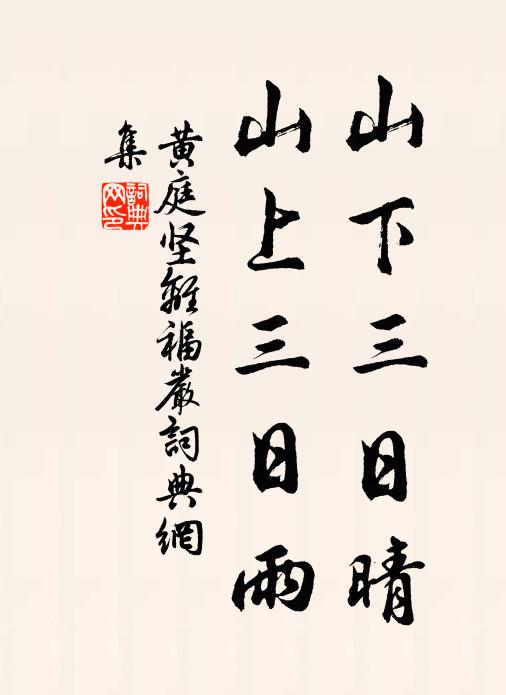 山下三日晴
山上三日雨
黄庭坚離福嚴詞典網
集
詞典网印